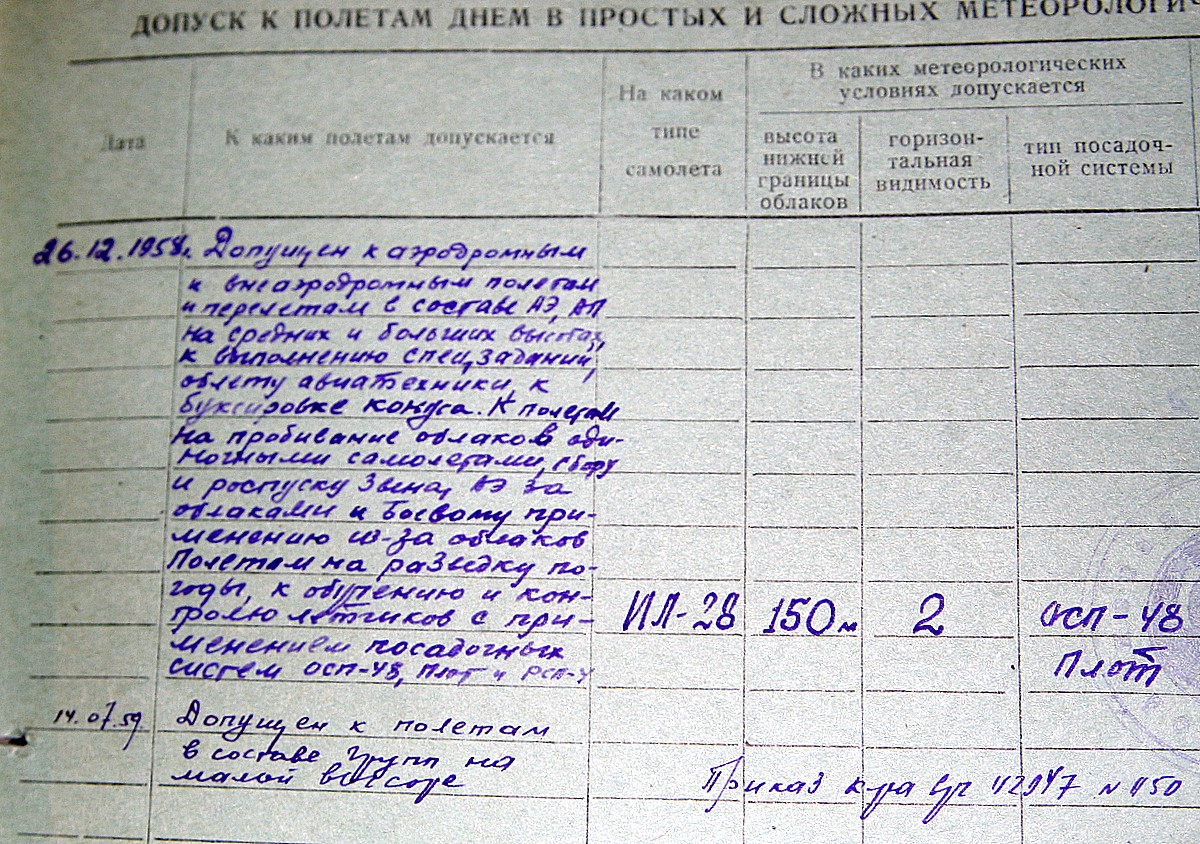 ДОПУСК К ПОЛЕТАМ ДНЕМ В ПРОСТЫХ И СЛОЖНЫХ МЕТЕОРОЛОГИЧ
Дата
К каким полетам допускается
На каком
типе
самолета
В каких метеорологических
условиях допускается
высота
нижней
границы
облаков
горизон-
тальная
видимость
тип посадоч-
ной системы
26.12.1958г. Допущен к аэродромным
и внеаэродромным полетам
и перелетам в составе АЭ, АП
на средних и больших высотах,
к выполнению спец.заданий,
облету авиатехники, к
буксировке конуса. К полетам
на пробивание облаков оди-
ночными самолетами, сбору
и роспуску звена, АЭ за
облаками и боевому при-
менению из-за облаков
Полетам на разведку по-
годы, к обучению и кон-
тролю летчиков с при-
менением посадочных
систем ОСП-48, Плот и РСП-4
ИЛ-28 150м 2 ОСП-48
Плот
14.07.59. Допущен к полетам
в составе групп на
малой высоте
Приказ к-ра в/ч № 1150